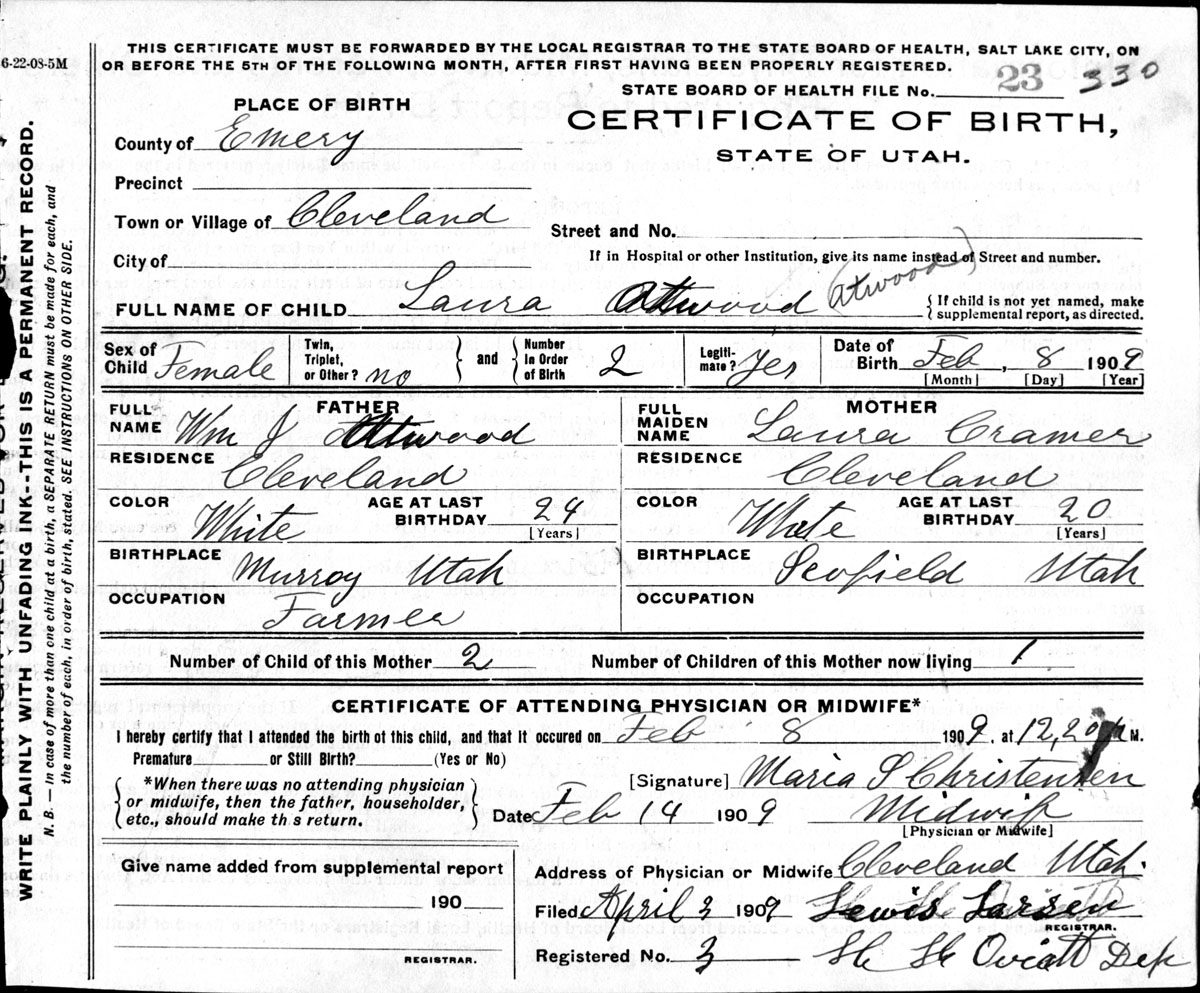 THIS CERTIFICATE MUST BE FORWARDED BY THE LOCAL REGISTRAR TO THE STATE BOARD OF HEALTH, SALT LAKE CITY, ON
6-22-08-5M OR BEFORE THE 5TH OF THE FOLLOWING MONTH, AFTER FIRST HAVING BEEN PROPERLY REGISTERED.
STATE BOARD OF HEALTH FILE No. 23 330
PLACE OF BIRTH
CERTIFICATE OF BIRTH,
STATE OF UTAH.
County of Emery
Precinct
Town or Village of Cleveland
Street and No.
City of
If in Hospital or other Institution, give its name instead of Street and number.
FULL NAME OF CHILD Laura Attwood (Atwood) { If child is not yet named, make
supplemental report, as directed.
Sex of Child Female Twin, Triplet, or Other? no and Number in Order of Birth 2 Legiti-mate? Yes Date of Birth Feb, 8 1909
[Month] [Day] [Year]
FATHER MOTHER
FULL NAME Wm J Attwood FULL MAIDEN NAME Laura Cramer
RESIDENCE Cleveland RESIDENCE Cleveland
COLOR White AGE AT LAST BIRTHDAY 24 [Years] COLOR White AGE AT LAST BIRTHDAY 20 [Years]
BIRTHPLACE Murray Utah BIRTHPLACE Scofield Utah
OCCUPATION Farmer OCCUPATION
Number of Child of this Mother 2 Number of Children of this Mother now living 1
CERTIFICATE OF ATTENDING PHYSICIAN OR MIDWIFE*
I hereby certify that I attended the birth of this child, and that it occured on Feb 8 1909, at 12,20 M.
Premature or Still Birth? (Yes or No)
*When there was no attending physician
or midwife, then the father, householder,
etc., should make this return.
[Signature] Maria S Christensen
Date Feb 14 1909 Midwife
[Physician or Midwife]
Give name added from supplemental report
190
REGISTRAR.
Address of Physician or Midwife Cleveland Utah
Filed April 3 1909 Lewis Larsen
REGISTRAR.
Registered No. 3 Oviatt Dep
WRITE PLAINLY WITH UNFADING INK--THIS IS A PERMANENT RECORD.
N. B.—In case of more than one child at a birth, a SEPARATE RETURN must be made for each, and
the number of each, in order of birth, stated. SEE INSTRUCTIONS ON OTHER SIDE.